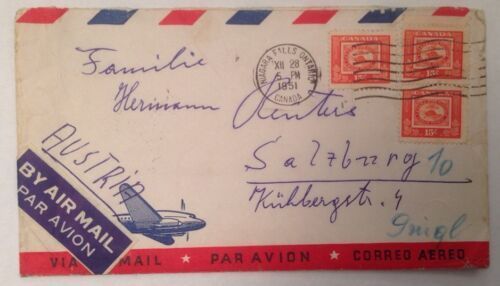 CANADA
CANADA
15¢
15¢
CANADA
15¢
NIAGARA FALLS ONTARIO
XII 28
5 PM
1951
CANADA
Familie
Hermann
Salzburg 10
Kühbergstr. 4
Gnigl
AUSTRIA
BY AIR MAIL
PAR AVION
VIA MAIL ★ PAR AVION ★ CORREO AEREO